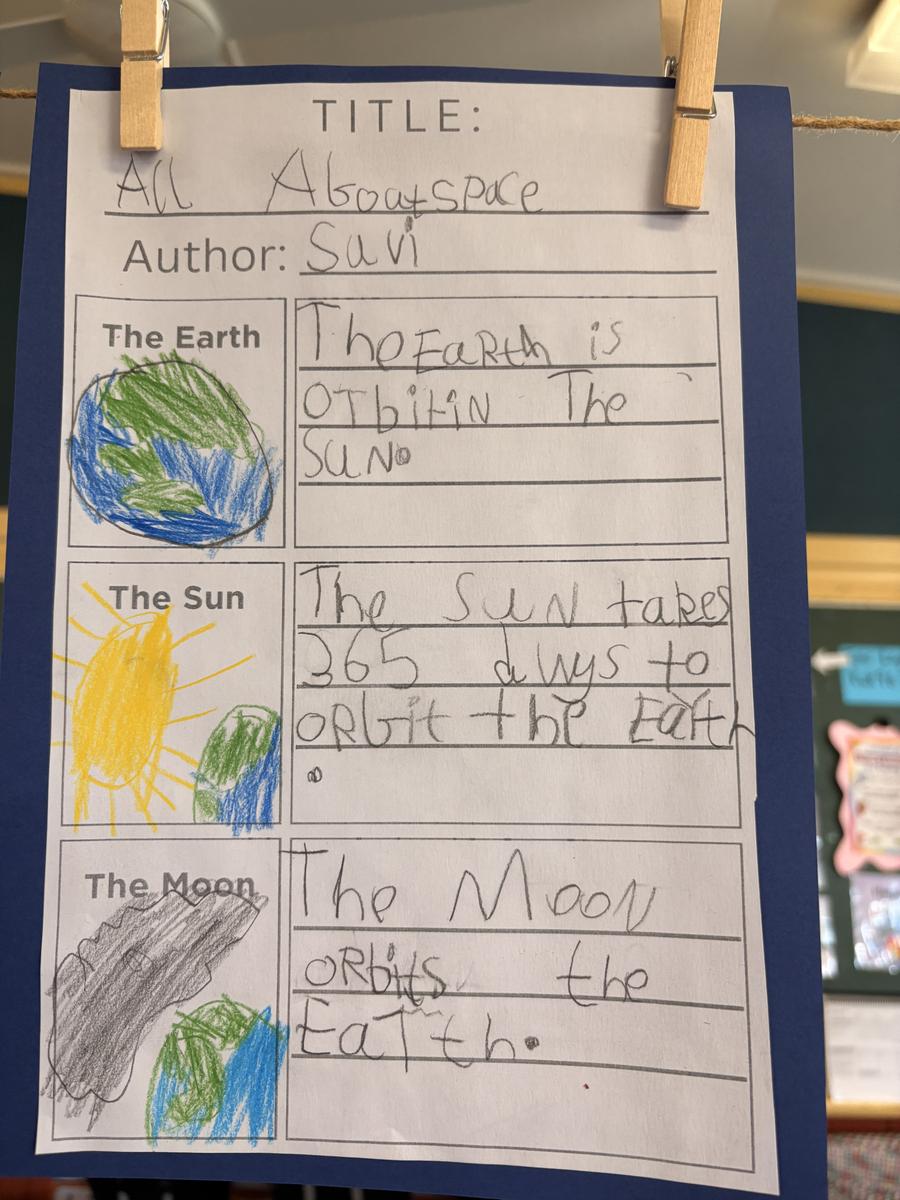 TITLE:
All Aboutspace
Author: Suvi
The Earth
The Earth is
orbitin The
SuN.
The Sun
The SuN takes
365 dayys to
oRbit the Earth
.
The Moon
The MooN
oRbits the
Earth.